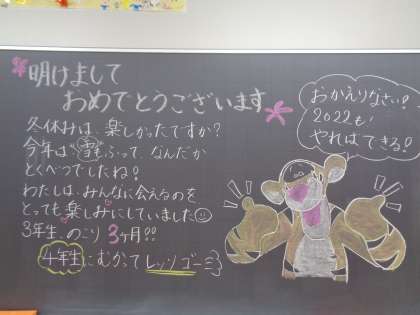 明けまして
おめでとうございます
冬休みは、楽しかったですか?
今年は、雪もふって、なんだか
とくべつでしたね!
わたしは、みんなに会えるのを
とっても楽しみにしていました
3年生、のこり3ヶ月!!
4年生にむかってレッツゴー
おかえりなさい!
2022も、
やればできる!